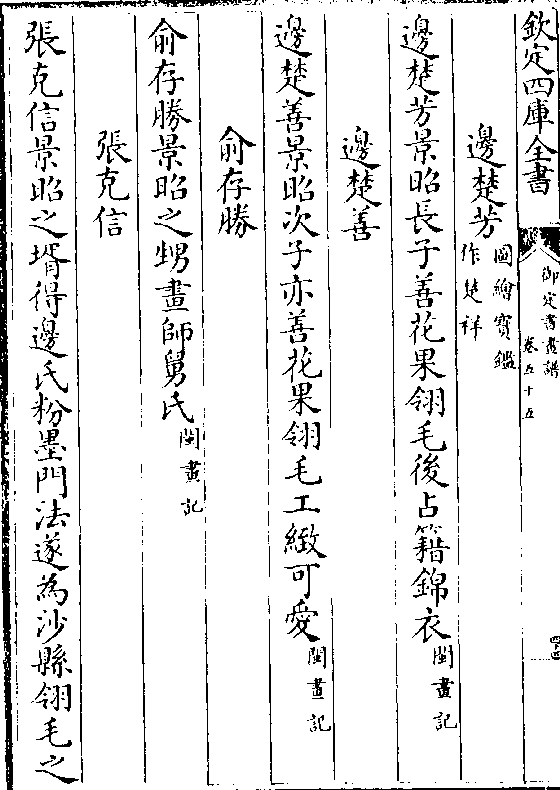 欽定四庫全書
御定書畫譜
卷五十五
邊楚芳
圖繪寶鑑
作楚祥
邊楚芳景昭長子善花果翎毛後占籍錦衣閩畫記
邊楚善
邊楚善景昭次子亦善花果翎毛工緻可愛閩畫記
俞存勝
俞存勝景昭之甥畫師舅氏閩畫記
張克信
張克信景昭之壻得邊氏粉墨門法遂為沙縣翎毛之